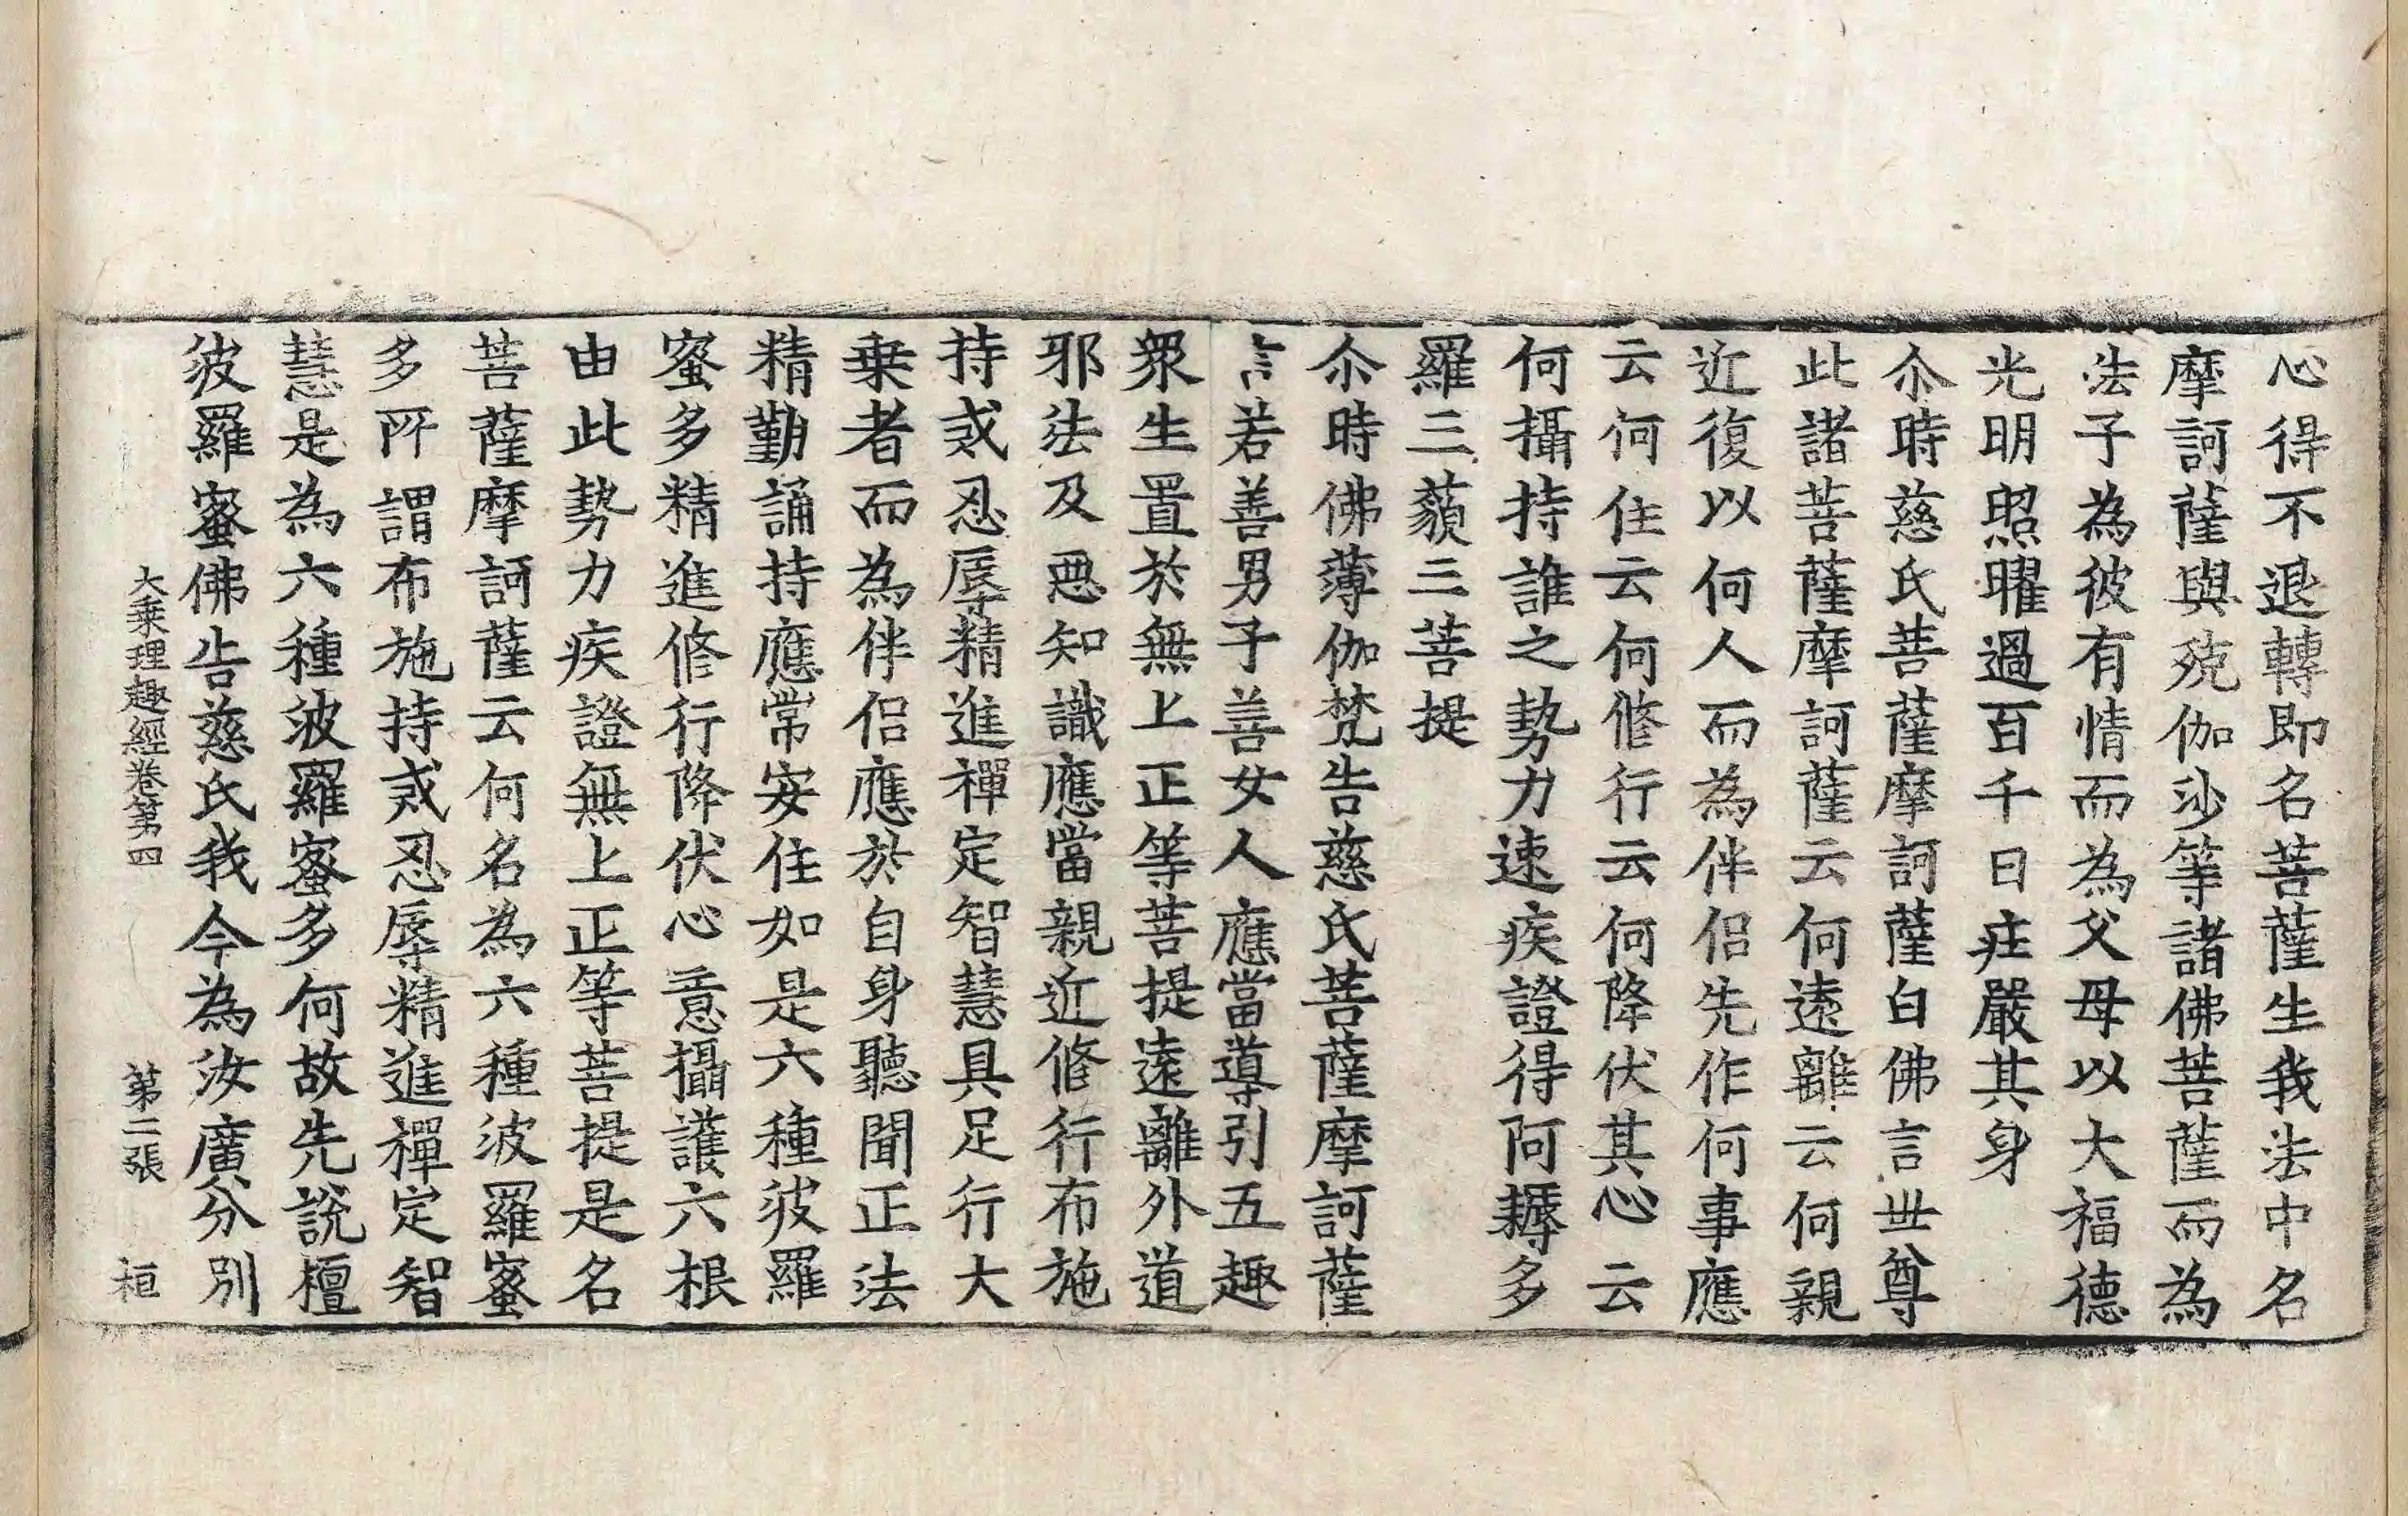 心得不退轉即名菩薩生我法中名
摩訶薩與殑伽沙等諸佛菩薩而為
法子為彼有情而為父母以大福德
光明照曜過百千日莊嚴其身
尒時慈氏菩薩摩訶薩白佛言世尊
此諸菩薩摩訶薩云何遠離云何親
近復以何人而為伴侶先作何事應
云何住云何修行云何降伏其心云
何攝持誰之勢力速疾證得阿耨多
羅三藐三菩提
尒時佛薄伽梵告慈氏菩薩摩訶薩
言若善男子善女人應當導引五趣
衆生置於無上正等菩提遠離外道
邪法及惡知識應當親近修行布施
持戒忍辱精進禪定智慧具足行大
乗者而為伴侶應於自身聽聞正法
精勤誦持應常安住如是六種波羅
蜜多精進修行降伏心意攝護六根
由此勢力疾證無上正等菩提是名
菩薩摩訶薩云何名為六種波羅蜜
多所謂布施持戒忍辱精進禪定智
慧是為六種波羅蜜多何故先說檀
波羅蜜佛告慈氏我今為汝廣分別
大乗理趣經卷第四 第二張 桓